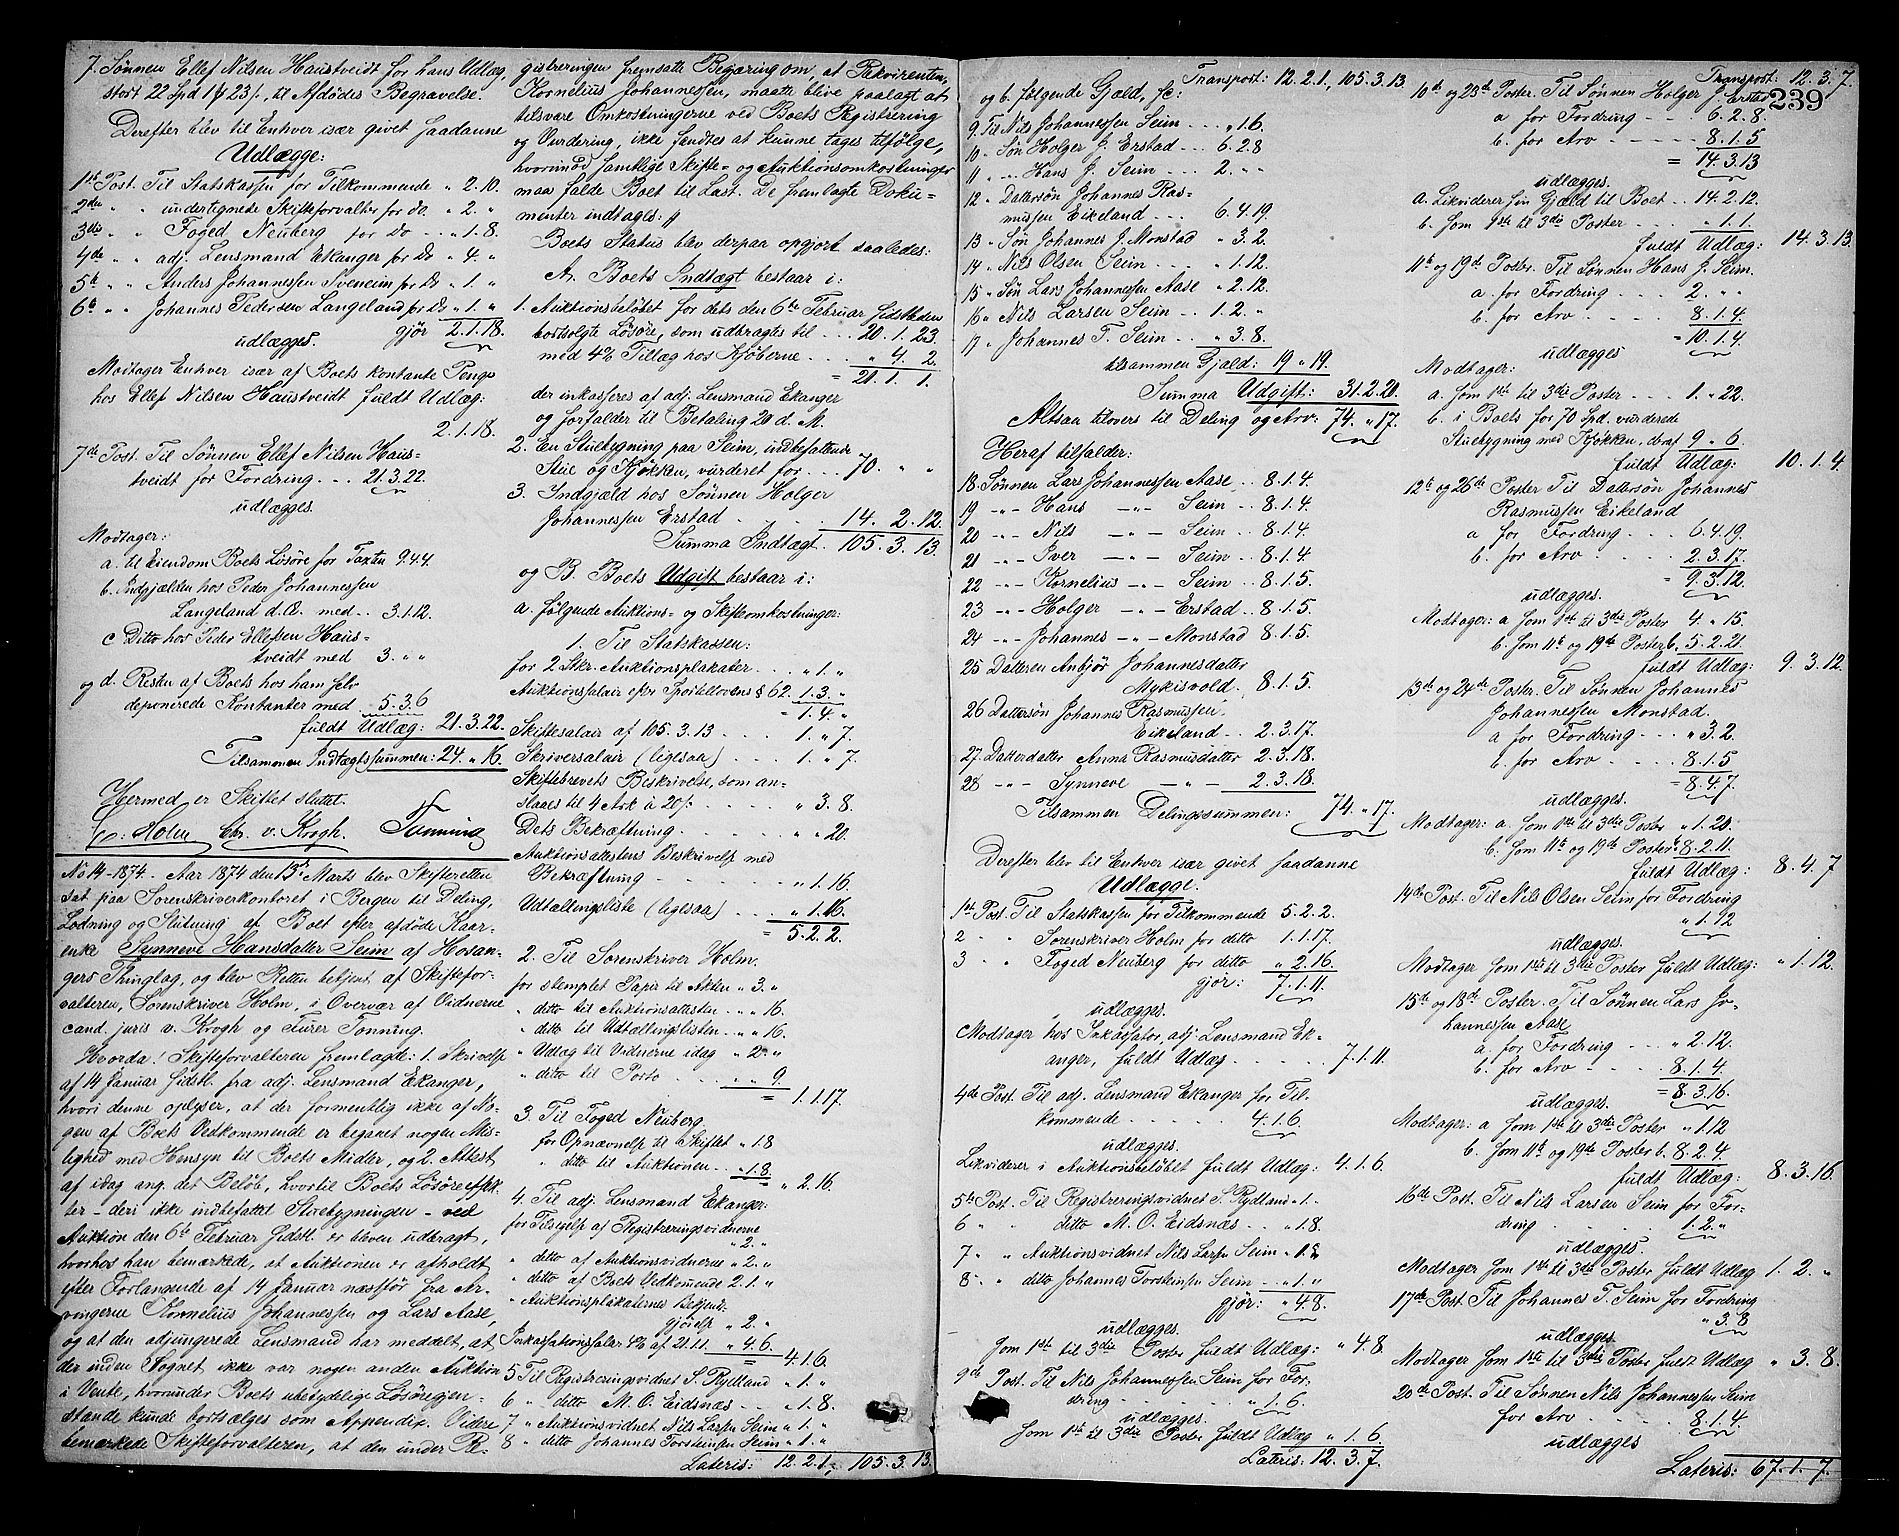 7. Sønnen Ellef Nilsen Haustveidt for hans Udlæg,
stort 22 Spd 1 ₰ 23 /-, til Afdødes Begravelse.
Derefter blev til Enhver især givet saadanne
Udlægge:
1ste Post. Til Statskassen for Tilkommende „ 2. 10.
2den „ „ undertegnede Skifteforvalter for do. „ 2. „
3die „ „ Foged Neuberg for Do „ 1. 8.
4de „ „ adj. Lensmand Ekanger for Do „ 4. „
5te „ „ Anders Johannessen Sveneim for Do „ 1. „
6te „ „ Johannes Pedersen Langeland for Do „ 1. „
gjør 2. 1. 18.
udlægges.
Modtager Enhver især af Boets kontante Penge
hos Ellef Nilsen Haustveidt fuldt Udlæg:
2. 1. 18.
7de Post. Til Sønnen Ellef Nilsen Haus-
tveidt for Fordring . . . 21. 3. 22.
udlægges.
Modtager:
a. til Eiendom Boets Løsøre for Taxten 9.4.4.
b. Indgjælden hos Peder Johannessen
Langeland d. Æ. med . . 3. 1. 12.
c Ditto hos Peder Ellefsen Haus-
tveidt med 3. „ „
og d. Resten af Boets hos ham selv
deponerede Kontanter med 5. 3. 6
fuldt Udlæg: 21. 3. 22.
Tilsammen Indtægtssummen: 24. „ 16.
Hermed er Skiftet sluttet.
C. Holm. Chr. v. Krogh. F Tonning
No 14-1874. Aar 1874 den 13de Marts blev Skifteretten
sat paa Sorenskriverkontoret i Bergen til Deling,
Lodning og Slutning af Boet efter afdøde Kaar-
enke Synneve Hansdatter Seim af Hosan-
gers Thinglag, og blev Retten betjent af Skiftefor-
valteren, Sorenskriver Holm, i Overvær af Vidnerne
cand. juris v. Krogh og Furer Tonning.
Hvorda! Skifteforvalteren fremlagte: 1. Skrivelse
af 14 Januar sidstl. fra adj. Lensmand Ekanger,
hvori denne oplyser, at der formentlig ikke af No-
gen af Boets Vedkommende er begaaet nogen Mis-
lighed med Hensyn til Boets Midler, og 2. Attest
af idag ang. det Beløb, hvortil Boets Løsøreeffek-
ter – deri ikke indbefattet Stuebygningen – ved
Auktion den 6te Februar sidstl. er bleven udbragt,
hvorhos han bemærkede, at Auktionen er afholdt
efter Forlangende af 14 Januar næstfør fra Ar-
vingerne Kornelius Johannessen og Lars Aase,
og at den adjungerede Lensmand har meddelt, at
der inden Sognet ikke var nogen anden Auktion
i Vente, hvorunder Boets ubetydelige Løsøregjen-
stande kunde bortsælges som Appendix. Videre
bemærkede Skifteforvalteren, at den under R.
gistreringen fremsatte Begjæring om, at Rekvirenten,
Kornelius Johannessen, maatte blive paalagt at
tilsvare Omkostningerne ved Boets Registrering
og Vurdering, ikke fandtes at kunne tages tilfølge,
hvorimod samtlige Skifte- og Auktionsomkostninger
maa falde Boet til Last. De fremlagte Doku-
menter indtages: //
Boets Status blev derpaa opgjort saaledes:
A. Boets Indtægt bestaar i:
1. Auktionsbeløbet for dets den 6te Februar sidstleden
bortsolgte Løsøre, som udbragtes til . . . 20. 1. 23.
med 4% Tillæg hos Kjøberne . . . „ 4. 2.
= 21. 1. 1.
der inkasseres af adj. Lensmand Ekanger
og forfalder til Betaling 20 d. M.
2. En Stuebygning paa Seim, indbefattende
Stue og Kjøkken, vurderet for . . . 70. „ „
3. Indgjæld hos Sønnen Holger
Johannessen Erstad . . . 14. 2. 12.
Summa Indtægt. 105. 3. 13.
og B. Boets Udgift bestaar i:
a. følgende Auktions- og Skifteomkostninger:
1. Til Statskassen:
for 2 Stkr. Auktionsplakater . . . „ 1. „
Auktionssalair efter Sportellovens § 62. 1. 3. „
= 1. 4. „
Skiftesalair af 105. 3. 13 . . . 1. „ 7.
Skriversalair (ligesaa) . . . 1. „ 7.
Skiftebrevets Beskrivelse, som an-
slaaes til 4 Ark à 20/- . . . „ 3. 8.
Dets Bekræftning . . . „ „ 20.
Auktionsattestens Beskrivelse med
Bekræftning . . . „ 1. 16.
Udtællingsliste (ligesaa) . . . „ 1. 16.
= 5. 2. 2.
2. Til Sorenskriver Holm.
for stemplet Papir til Akten „ 3. „
„ ditto til Auktionsattesten . . „ „ 16.
„ ditto til Udtællingslisten . . „ „ 16.
„ Udlag til Vidnerne idag „ 2. „
„ ditto til Porto . . . „ „ 9.
= 1. 1. 17.
3. Til Foged Neuberg
for Opnævnelse til Skiftet „ 1. 8
„ ditto til Auktionen . . „ 1. 8.
= „ 2. 16.
4. Til adj. Lensmand Ekanger:
for Tilsigelse af Registreringsvidnerne
„ 2. „
„ ditto af Auktionsvidnerne „ 2. „
„ ditto af Boets Vedkommende 2. 1. „
„ Auktionsplakaternes Bekjend-
gjørelse „ 2. „
Inkassationssalar 4% af 21.1.1 „ 4. 6.
= 4. 1. 6.
5 Til Registreringsvidnet S. Rydland „ 1. „
6 „ ditto M. O. Eidsnæs . . „ 1. 8.
7 „ Auktionsvidnet Nils Larsen Seim „ 1. „
8 „ ditto Johannes Torsteinsen Seim „ 1. „
Lateris: 12. 2. 1., 105. 3. 13.
Transport: 12. 2. 1., 105. 3. 13.
og b. følgende Gjæld, sc:
9. Til Nils Johannessen Seim . . . „ 1. 6.
10 „ Søn Holger J. Erstad . . . 6. 2. 8
11 „ „ Hans J. Seim . . . 2. „ „
12 „ Dattersøn Johannes Ras-
mussen Eikeland . . . 6. 4. 19.
13 „ Søn Johannes J. Monstad „ 3. 2.
14 „ Nils Olsen Seim . . . „ 1. 12.
15 „ Søn Lars Johannessen Aase „ 2. 12.
16 „ Nils Larsen Seim . . 1. 2. „
17 „ Johannes T. Seim . . . „ 3. 8.
tilsammen Gjæld: 19 „ 19.
Summa Udgift: 31. 2. 20.
Altsaa tilovers til Deling og Arv: 74. „ 17.
Heraf tilfalder:
18. Sønnen Lars Johannessen Aase . . 8. 1. 4.
19 „-„ Hans „-„ Seim . . 8. 1. 4.
20 „-„ Nils „-„ Seim . . 8. 1. 4
21 „-„ Iver „-„ Seim . . 8. 1. 4
22 „-„ Kornelius „-„ Seim . . 8. 1. 5.
23 „-„ Holger „-„ Erstad . . 8. 1. 5.
24 „-„ Johannes „-„ Monstad 8. 1. 5.
25 Datteren Anbjør Johannesdatter
Mykisvold . . 8. 1. 5.
26 Dattersøn Johannes Rasmussen
Eikeland . . 2. 3. 17.
27. Datterdatter Anna Rasmusdatter 2. 3. 18.
28 „-„ Synneve „-„ 2. 3. 18.
Tilsammen Delingssummen: 74. „ 17.
Derefter blev til Enhver især givet saadanne
Udlægge:
1ste Post. Til Statskassen for Tilkommende 5. 2. 2.
2 „ „ Sorenskriver Holm for ditto 1. 1. 17.
3 „ „ Foged Neuberg for ditto „ 2. 16.
gjør: 7. 1. 11.
udlægges.
Modtager hos Inkassator, adj. Lensmand Ek-
anger, fuldt Udlæg . . . 7. 1. 11.
4de Post. Til adj. Lensmand Ekanger for Til-
kommende . . . 4. 1. 6.
udlægges.
Likviderer i Auktionsbeløbet fuldt Udlæg: 4. 1. 6.
5te Post. Til Registreringsvidnet S. Rydland „ 1. „
6 „ „ ditto M. O. Eidsnæs . . „ 1. 8.
7 „ „ Auktionsvidnet Nils Larsen Seim „ 1. „
8 „ „ ditto Johannes Torsteinsen Seim „ 1. „
gjør: „ 4. 8.
udlægges.
Som 1ste til 3die Poster fuldt Udlæg: „ 4. 8.
9de Post. Til Nils Johannessen Seim for For-
dring . . . „ 1. 6.
udlægges.
Som 1ste til 3die Poster fuldt Udlæg „ 1. 6
Lateris: 12. 3. 7.
239
Transport: 12. 3. 7.
10de og 23de Poster. Til Sønnen Holger J. Erstad
a for Fordring . . . 6. 2. 8.
b. for Arv . . . 8. 1. 5
= 14. 3. 13
udlægges.
a. Likviderer sin Gjæld til Boet . . 14. 2. 12.
b. Som 1ste til 3die Poster . . . „ 1. 1.
fuldt Udlæg: 14. 3. 13.
11te og 19de Poster. Til Sønnen Hans J. Seim.
a. for Fordring . . . 2. „ „
b. for Arv . . . 8. 1. 4.
= 10. 1. 4.
udlægges
Modtager:
a. som 1ste til 3die Poster . . . 1. „ 22.
b. i Boets for 70 Spd. vurderede
Stuebygning med Kjøkken, deraf 9 „ 6.
fuldt Udlæg: 10. 1. 4.
12te og 26de Poster Til Dattersøn Johannes
Rasmussen Eikeland
a for Fordring . . . 6. 4. 19.
b. for Arv . . . 2. 3. 17.
= 9. 3. 12.
udlægges.
Modtager: a som 1ste til 3die Poster 4. „ 15.
b. som 11te og 19de Poster b. 5. 2. 21.
fuldt Udlæg: 9. 3. 12.
13de og 24de Poster. Til Sønnen Johannes
Johannessen Monstad.
a for Fordring . . . „ 3. 2.
b. for Arv . . . 8. 1. 5
= 8. 4. 7.
udlægges.
Modtager: a. som 1ste til 3die Poster „ 1. 20.
b. som 11te og 19de Poster b. 8. 2. 11.
fuldt Udlæg: 8. 4. 7
14de Post. Til Nils Olsen Seim for Fordring
„ 1. 12
udlægges.
Modtager som 1ste til 3die Poster fuldt Udlæg: „ 1. 12.
15de og 18de Poster. Til Sønnen Lars Jo-
hannessen Aase
a for Fordring . . . „ 2. 12.
b. for Arv . . . 8. 1. 4.
= 8. 3. 16.
udlægges.
Modtager: a som 1ste til 3die Poster „ 1. 12
b. som 11te og 19de Poster b. 8. 2. 4.
fuldt Udlæg: 8. 3. 16.
16de Post. Til Nils Larsen Seim for For-
dring . . . 1. 2. „
udlægges.
Modtager som 1ste til 3die Poster fuldt Udlæg 1. 2. „
17de Post. Til Johannes T. Seim for Fordring
„ 3. 8
udlægges.
Modtager som 1ste til 3die Poster fuldt Udlæg „ 3. 8.
20de Post. Til Sønnen Nils Johannessen Seim
for Arv . . . 8. 1. 4.
udlægges
Lateris: 67. 1. 7.